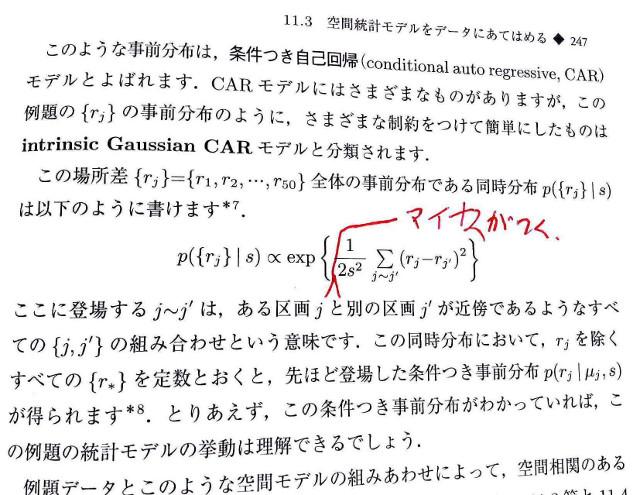 11.3 空間統計モデルをデータにあてはめる ◆ 247
このような事前分布は，条件つき自己回帰(conditional auto regressive, CAR)
モデルとよばれます．CAR モデルにはさまざまなものがありますが，この
例題の {r_j} の事前分布のように，さまざまな制約をつけて簡単にしたものは
intrinsic Gaussian CAR モデルと分類されます．
この場所差 {r_j}={r_1, r_2, …, r_50} 全体の事前分布である同時分布 p({r_j} | s)
は以下のように書けます*7．
マイナスがつく．
p({r_j} | s) ∝ exp { 1/2s² Σ_{j~j′} (r_j−r_{j′})² }
ここに登場する j~j′ は，ある区画 j と別の区画 j′ が近傍であるようなすべ
ての {j, j′} の組み合わせという意味です．この同時分布において，r_j を除く
すべての {r_*} を定数とおくと，先ほど登場した条件つき事前分布 p(r_j | μ_j, s)
が得られます*8．とりあえず，この条件つき事前分布がわかっていれば，こ
の例題の統計モデルの挙動は理解できるでしょう．
例題データとこのような空間モデルの組みあわせによって，空間相関のある